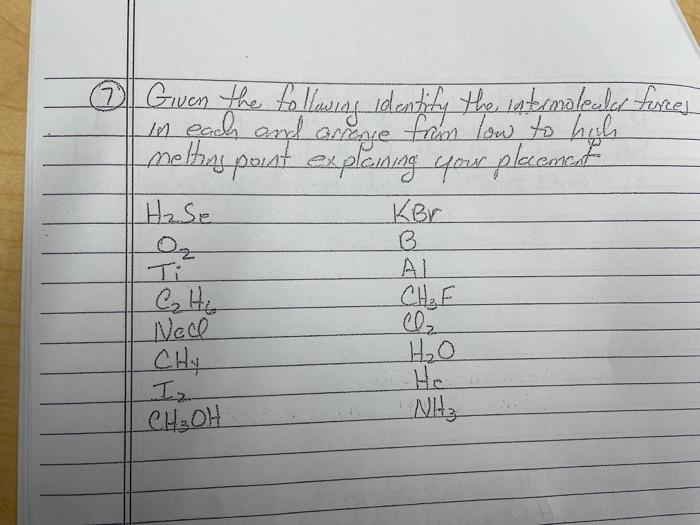 7 Given the following identify the intermolecular forces
in each and arrange from low to high
melting point explaining your placement
H₂Se KBr
O₂ B
Ti Al
C₂H₆ CH₃F
NaCl Cl₂
CH₄ H₂O
I₂ He
CH₃OH NH₃